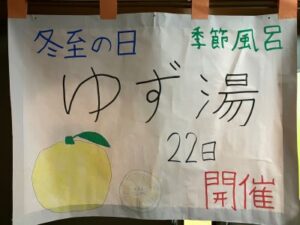 冬至の日
季節風呂
ゆず湯
22日
開催